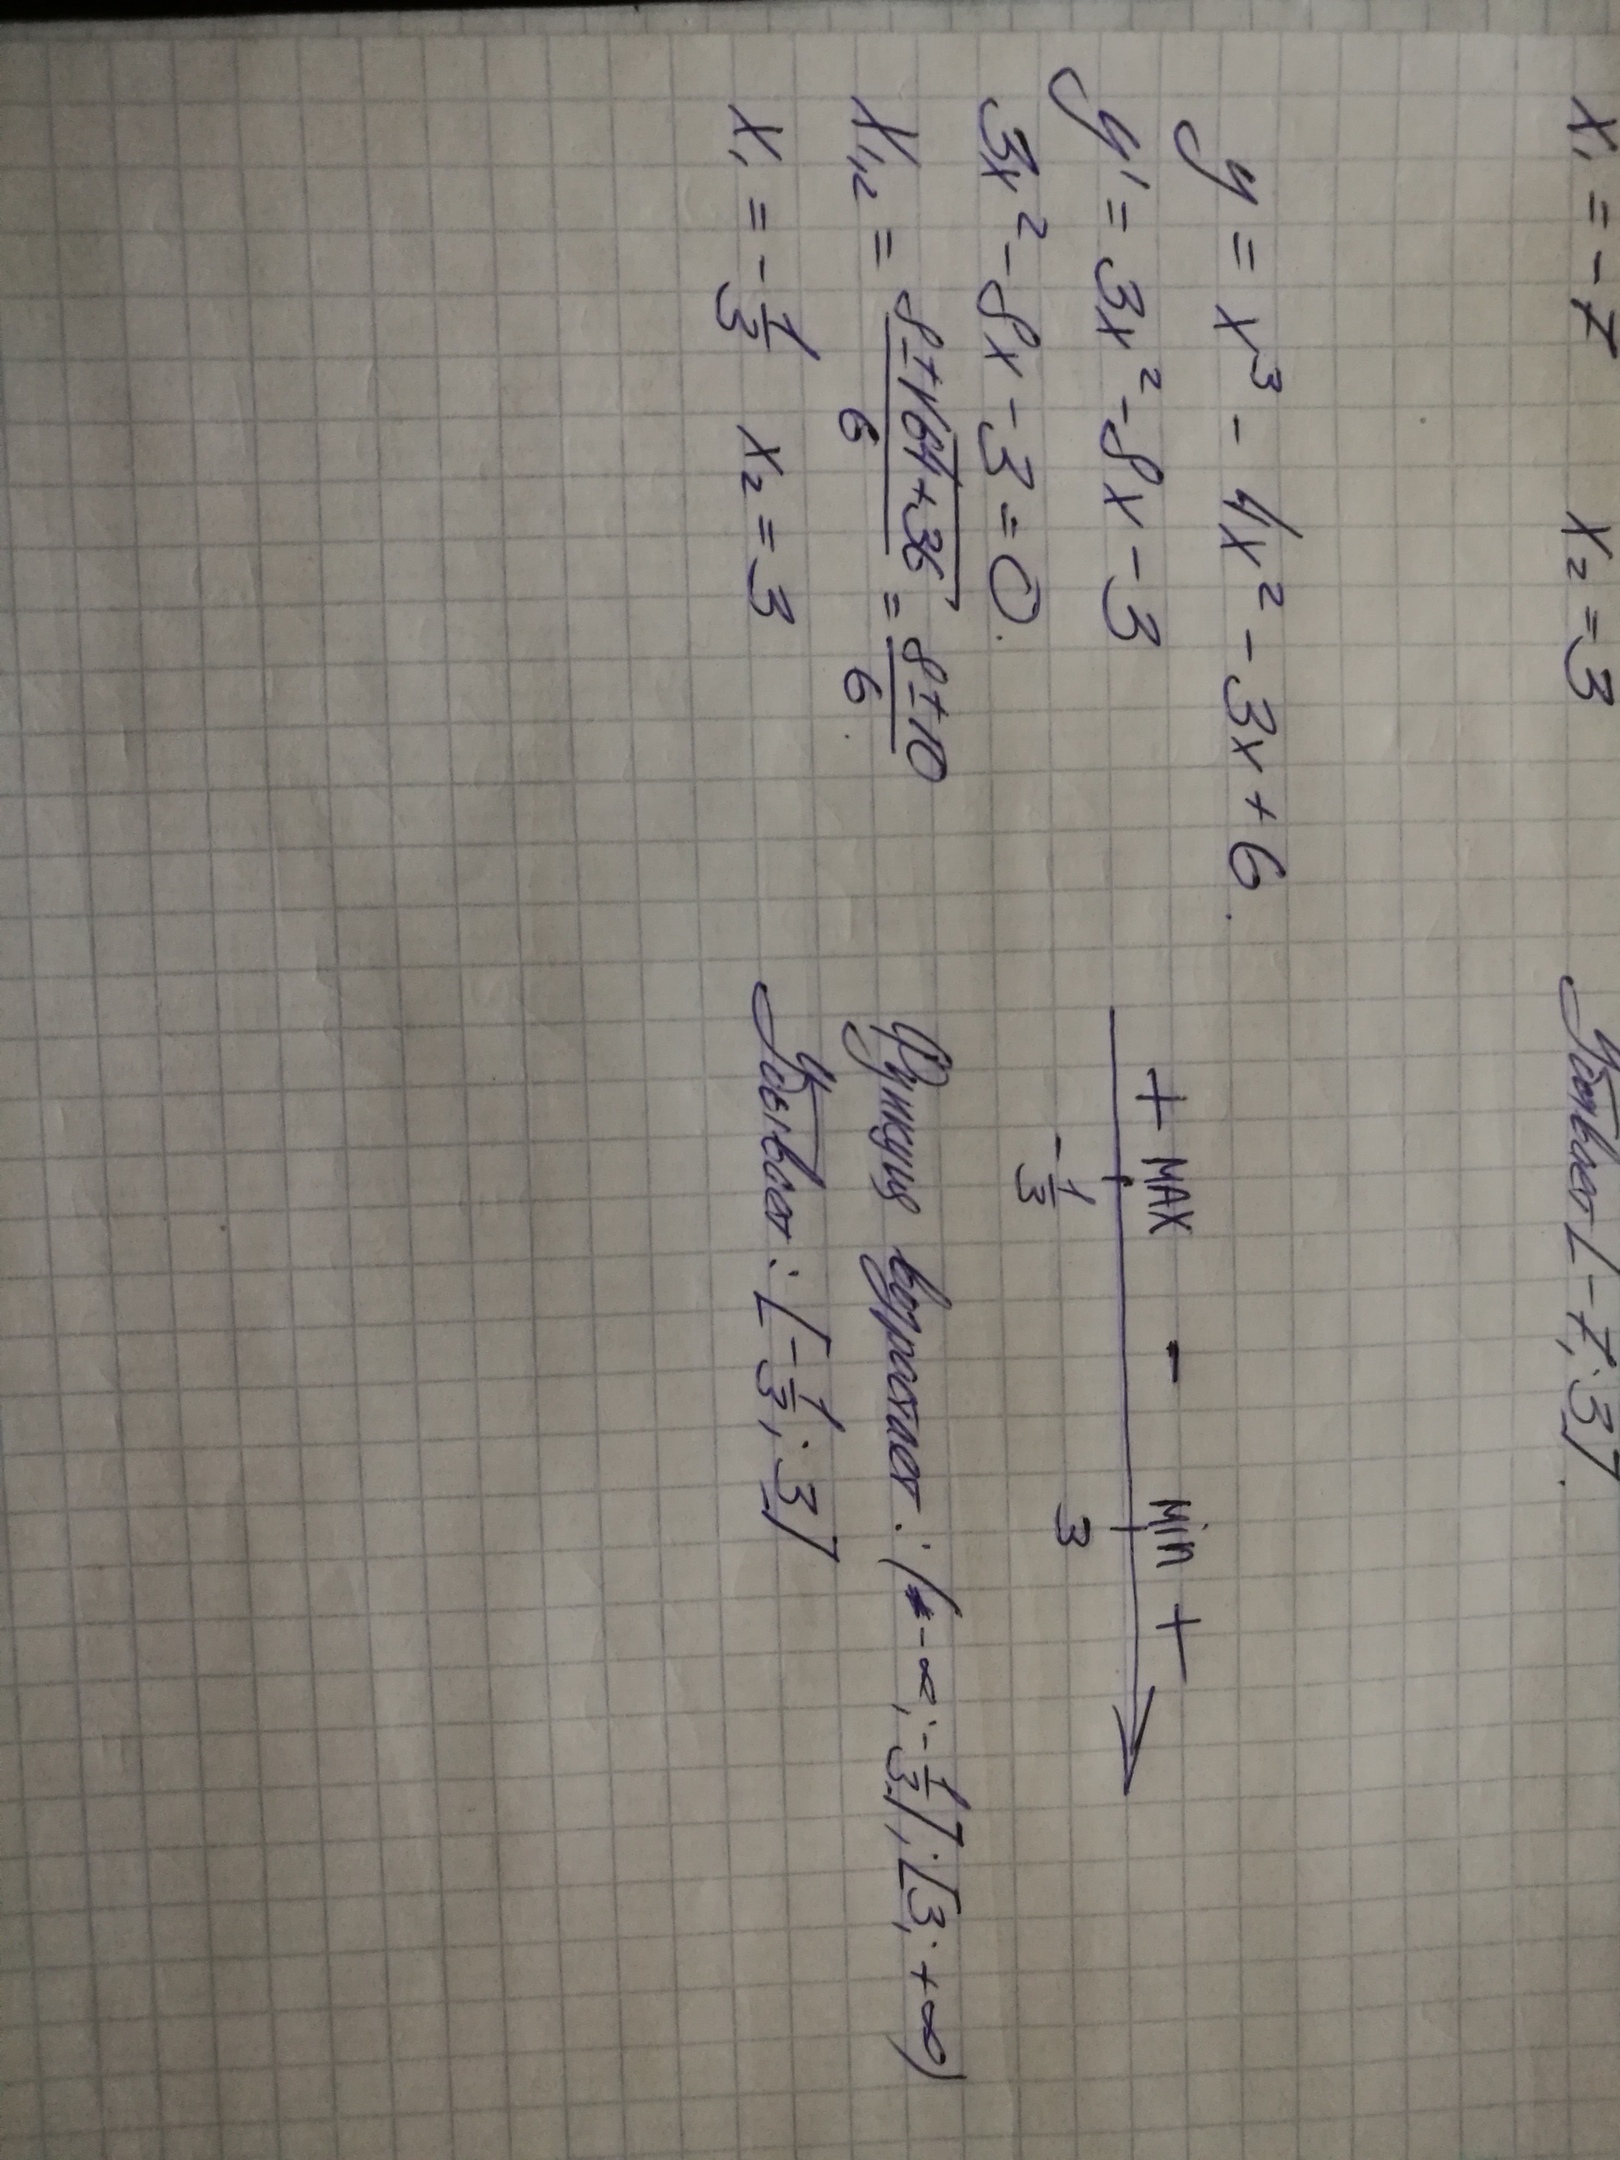 x₁ = -7 x₂ = 3 Убывает [-7; 3].
y = x³ - 4x² - 3x + 6.
y' = 3x² - 8x - 3
3x² - 8x - 3 = 0.
x₁,₂ = (8 ± √(64 + 36))/6 = (8 ± 10)/6.
x₁ = -1/3 x₂ = 3
+ MAX - Min +
-1/3 3
Функция возрастает: (-∞; -1/3]; [3; +∞)
Убывает: [-1/3; 3]